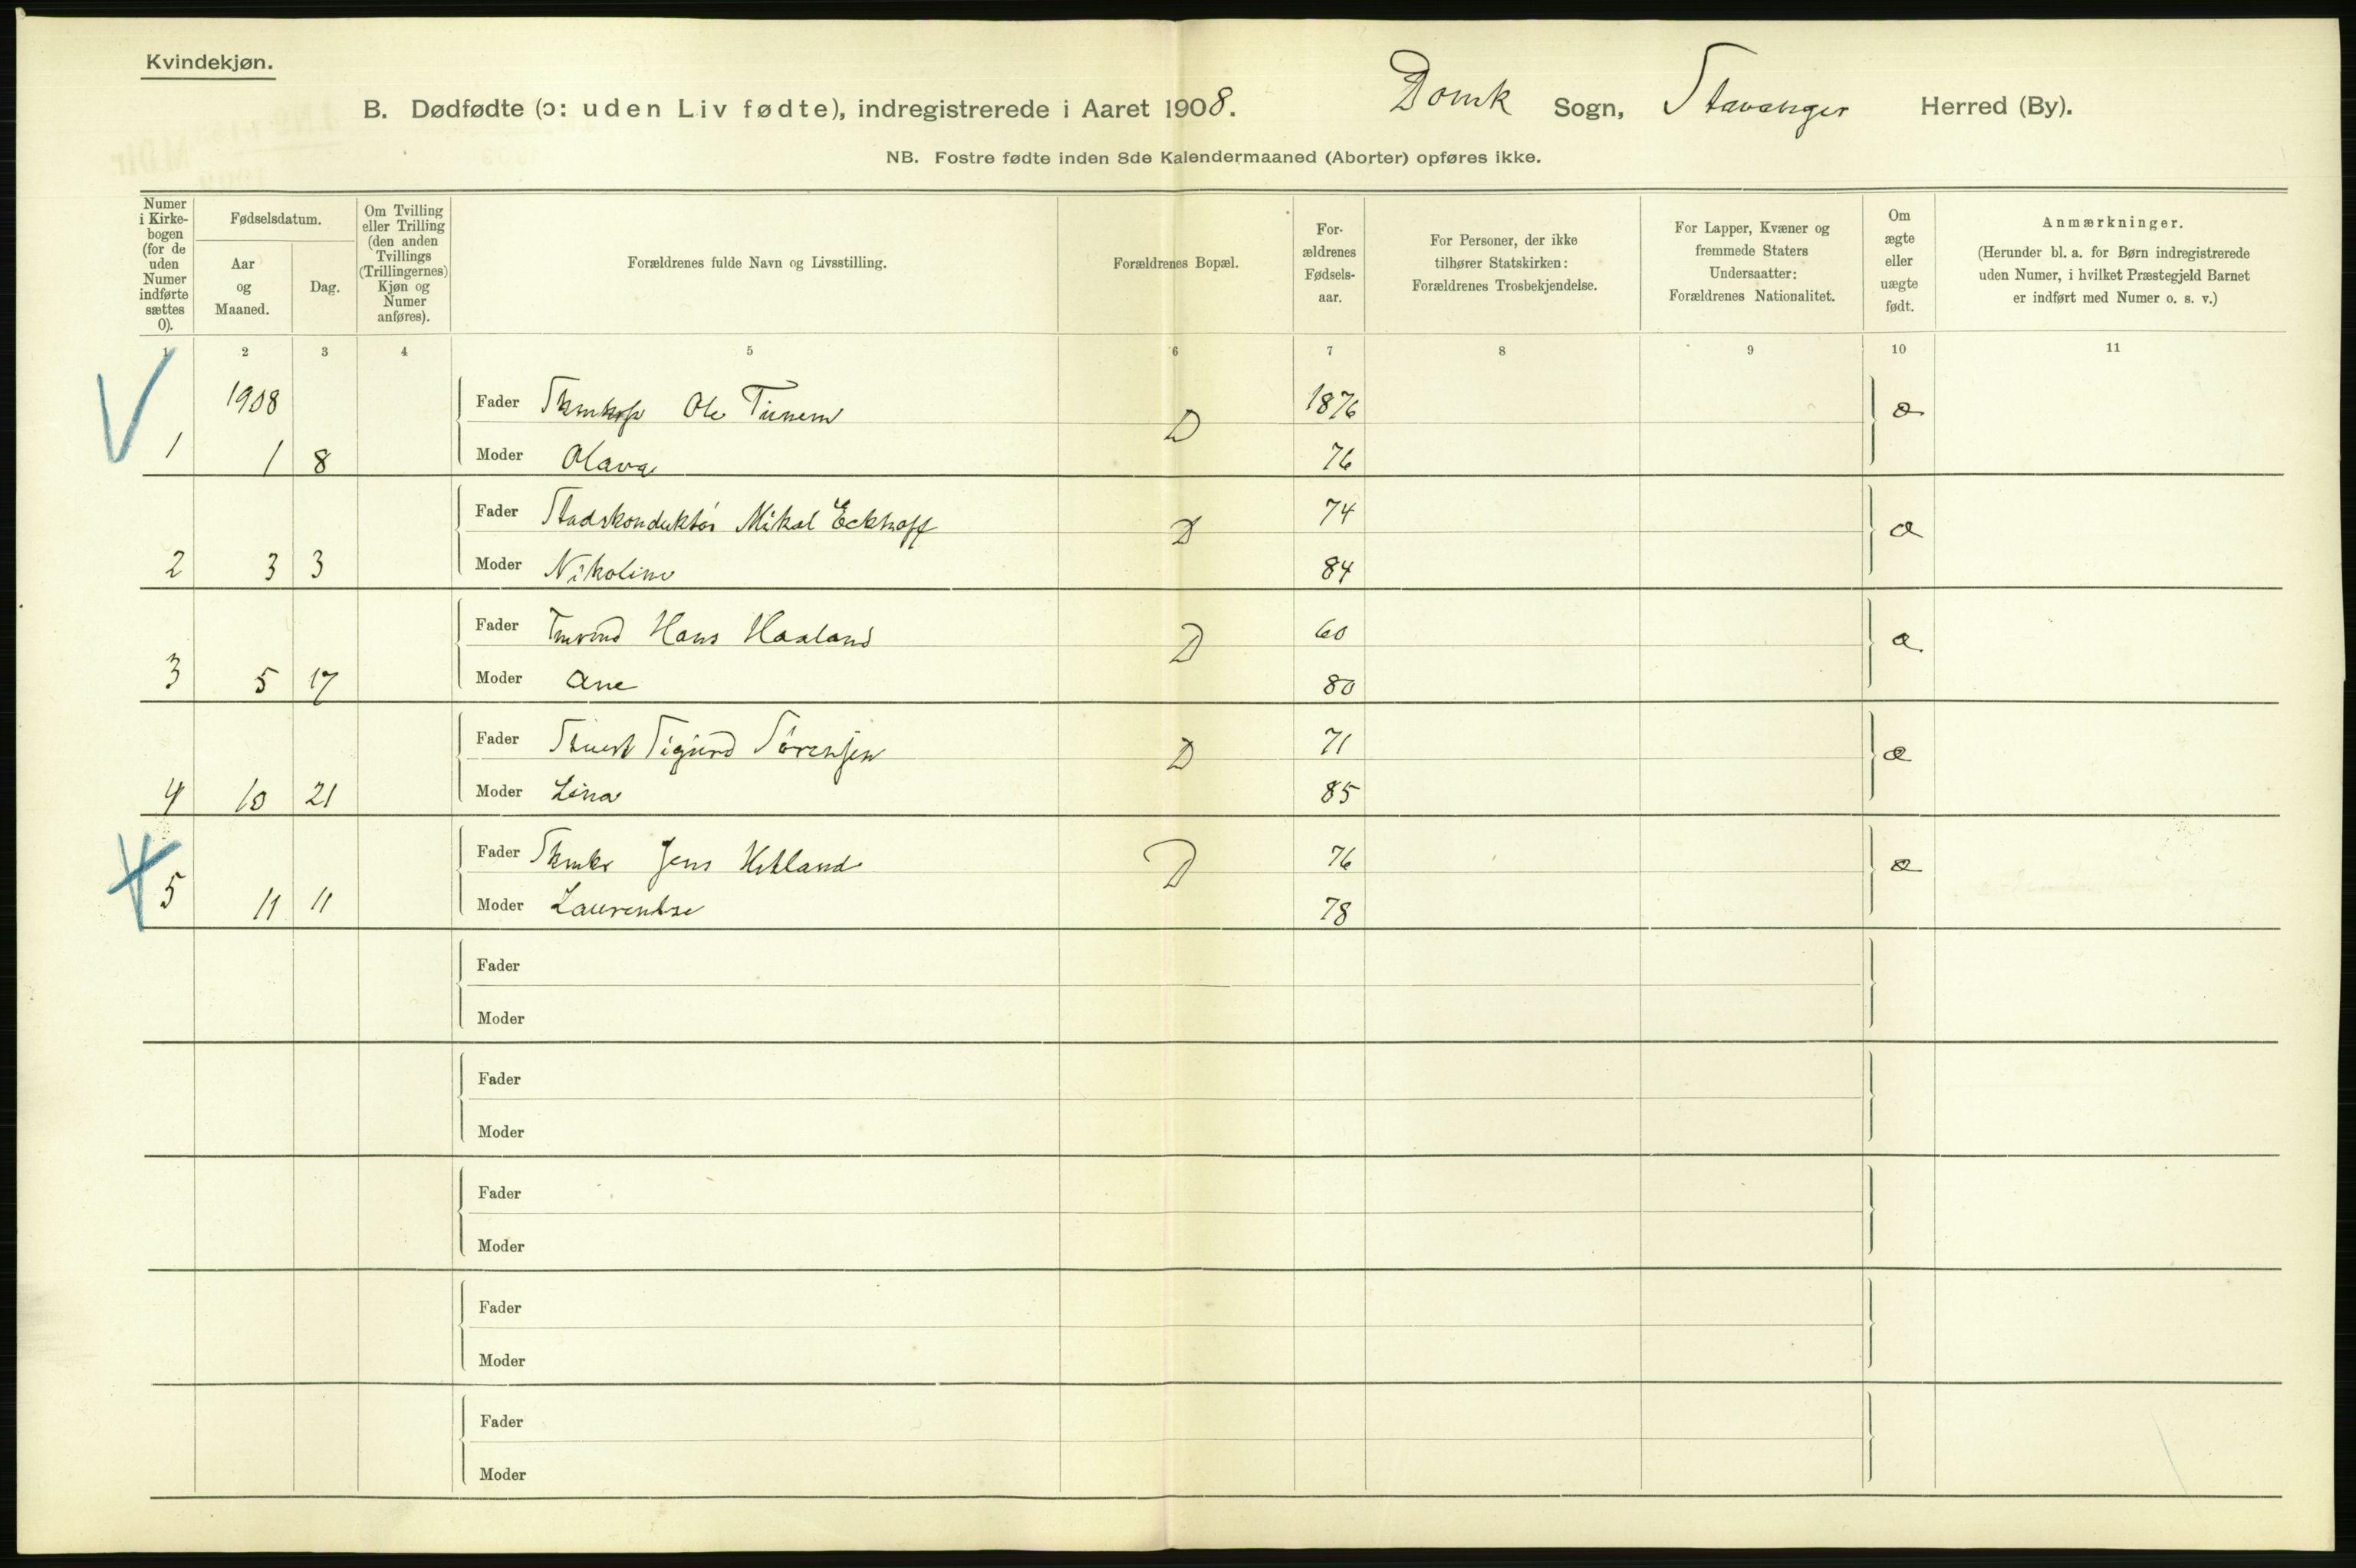 Kvindekjøn.
B. Dødfødte (ɔ: uden Liv fødte), indregistrerede i Aaret 1908. Domk Sogn, Stavanger Herred (By).
NB. Fostre fødte inden 8de Kalendermaaned (Aborter) opføres ikke.
Numer i Kirke-bogen (for de uden Numer indførte sættes 0).
Fødselsdatum.
Aar og Maaned.
Dag.
Om Tvilling eller Trilling (den anden Tvillings (Trillingernes) Kjøn og Numer anføres).
Forældrenes fulde Navn og Livsstilling.
Forældrenes Bopæl.
For-ældrenes Fødsels-aar.
For Personer, der ikke tilhører Statskirken: Forældrenes Trosbekjendelse.
For Lapper, Kvæner og fremmede Staters Undersaatter: Forældrenes Nationalitet.
Om ægte eller uægte født.
Anmærkninger.
(Herunder bl. a. for Børn indregistrerede uden Numer, i hvilket Præstegjeld Barnet er indført med Numer o. s. v.)
1 2 3 4 5 6 7 8 9 10 11
1908
Fader Ole Tunem D 1876 æ
1 1 8 Moder Olava 76
Fader Stadskonduktör Mikal Eckhoff D 74 æ
2 3 3 Moder Nikoline 84
Fader Hans Haaland D 60 æ
3 5 17 Moder Ane 80
Fader Sigurd Sörensen D 71 æ
4 10 21 Moder Lina 85
Fader Jens Hetland D 76 æ
5 11 11 Moder Laurentse 78
Fader
Moder
Fader
Moder
Fader
Moder
Fader
Moder
Fader
Moder